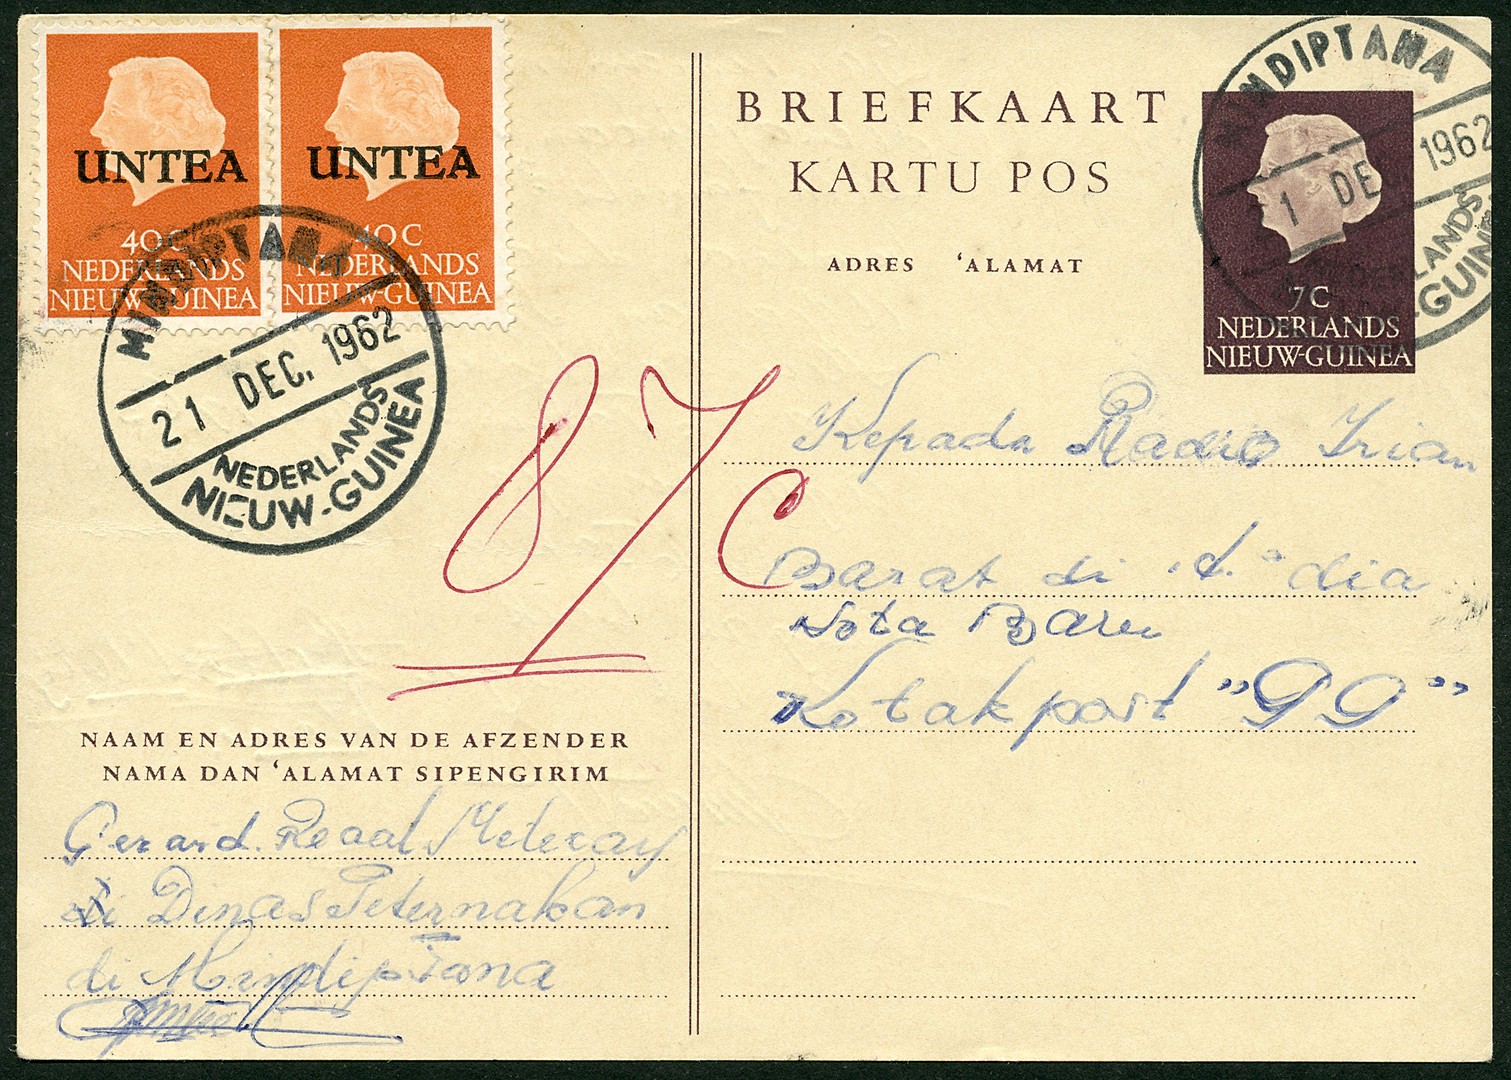 UNTEA
40 C
NEDERLANDS
NIEUW-GUINEA
UNTEA
40 C
NEDERLANDS
NIEUW-GUINEA
MINDIPTANA
21 DEC. 1962
NEDERLANDS
NIEUW-GUINEA
BRIEFKAART
KARTU POS
ADRES ‘ALAMAT
MINDIPTANA
21 DEC 1962
NEDERLANDS
NIEUW-GUINEA
7 C
NEDERLANDS
NIEUW-GUINEA
87 C
Kepada Radio Irian
Barat di dia
Kota Baru
Kotakpost "GG"
NAAM EN ADRES VAN DE AFZENDER
NAMA DAN ‘ALAMAT SIPENGIRIM
Gerard.
di Dinas Peternakan
di Mindiptana